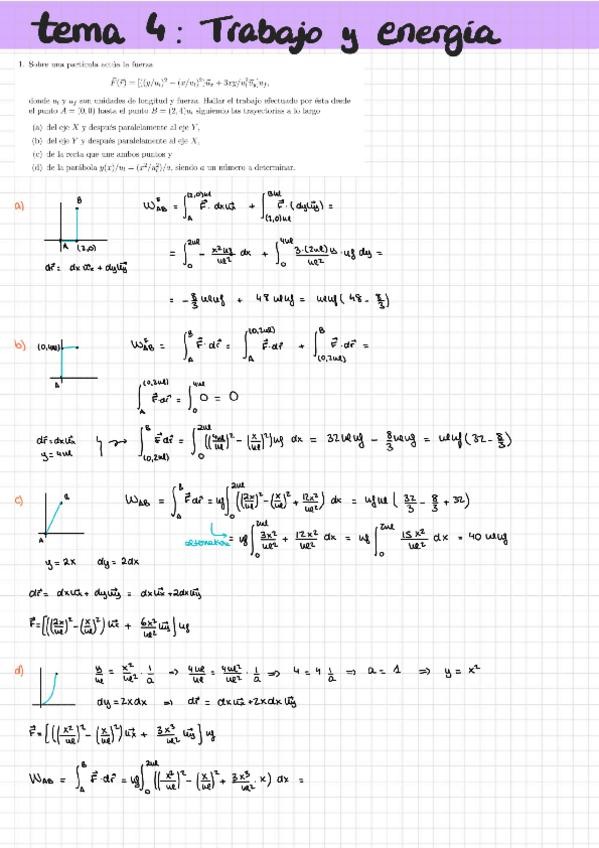 tema 4: Trabajo y energía
1. Sobre una partícula actúa la fuerza
F⃗(r⃗) = [((y/u_l)² − (x/u_l)²)u⃗_x + 3xy/u_l² u⃗_y]u_f,
donde u_l y u_f son unidades de longitud y fuerza. Hallar el trabajo efectuado por ésta desde
el punto A = (0, 0) hasta el punto B = (2, 4)u_l siguiendo las trayectorias a lo largo
(a) del eje X y después paralelamente al eje Y,
(b) del eje Y y después paralelamente al eje X,
(c) de la recta que une ambos puntos y
(d) de la parábola y(x)/u_l = (x²/u_l²)/a, siendo a un número a determinar.
a) B A (2,0)
W_AB = ∫_A^(2,0)ul F⃗·dx u⃗x + ∫_(2,0)ul^B F⃗·(dy u⃗y) =
= ∫_0^2ul − x²uf/ul² dx + ∫_0^4ul 3·(2ul)y/ul² · uf dy =
dr⃗ = dx u⃗x + dy u⃗y
= −8/3 uluf + 48 uluf = uluf(48 − 8/3)
b) (0,4ul) A
W_AB = ∫_A^B F⃗·dr⃗ = ∫_A^(0,2ul) F⃗·dr⃗ + ∫_(0,2ul)^B F⃗·dr⃗ =
∫_A^(0,2ul) F⃗·dr⃗ = ∫_0^4ul 0 = 0
dr⃗ = dx u⃗x
y = 4ul
∫_(0,2ul)^B F⃗·dr⃗ = ∫_0^2ul ((4ul/ul)² − (x/ul)²)uf dx = 32uluf − 8/3 uluf = uluf(32 − 8/3)
c) A B
W_AB = ∫_A^B F⃗dr⃗ = uf∫_0^2ul ((2x/ul)² − (x/ul)² + 12x²/ul²) dx = uful(32/3 − 8/3 + 32)
= uf∫_0^2ul 3x²/ul² + 12x²/ul² dx = uf∫_0^2ul 15x²/ul² dx = 40 uluf
y = 2x dy = 2dx
dr⃗ = dx u⃗x + dy u⃗y = dx u⃗x + 2dx u⃗y
F⃗ = [((2x/ul)² − (x/ul)²)u⃗x + 6x²/ul² u⃗y] uf
d) y/ul = x²/ul² · 1/a ⇒ 4ul/ul = 4ul²/ul² · 1/a ⇒ 4 = 4 1/a ⇒ a = 1 ⇒ y = x²
dy = 2xdx ⇒ dr⃗ = dx u⃗x + 2xdx u⃗y
F⃗ = [((x²/ul)² − (x/ul)²)u⃗x + 3x³/ul² u⃗y] uf
W_AB = ∫_A^B F⃗·dr⃗ = uf∫_0^2ul ((x²/ul)² − (x/ul)² + 3x³/ul² · x) dx =